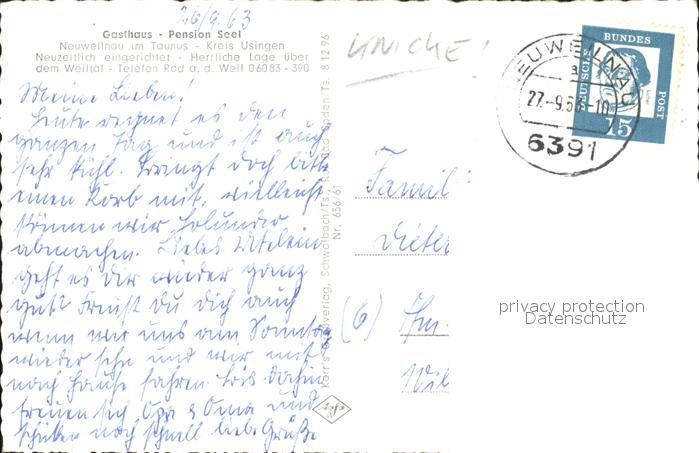 26/9.63
Gasthaus - Pension Seel
Neuweilnau im Taunus - Kreis Usingen
Neuzeitlich eingerichtet - Herrliche Lage über
dem Weiltal - Telefon Rod a. d. Weil 06083-390
Meine Lieben!
Heute regnet es den
ganzen Tag und ist auch
sehr kühl. Bringt doch bitte
einen Korb mit, vielleicht
können wir Holunder
abmachen. Liebes
geht es Dir wieder ganz
gut? Freust Du Dich auch
wenn wir uns am Sonntag
wieder sehn und wir mit
nach Hause fahren. Bis dahin
freuen sich Opa & Oma und
schicken noch schnell liebe Grüße
8 12 96
Schwalbach/Ts.
Nr. 656/61
UNICHE!
DEUTSCHE
BUNDES
POST
15
27.-9.63-10
6391
Famil
Dieter
(6) Ffm.
Wil
privacy protection
Datenschutz